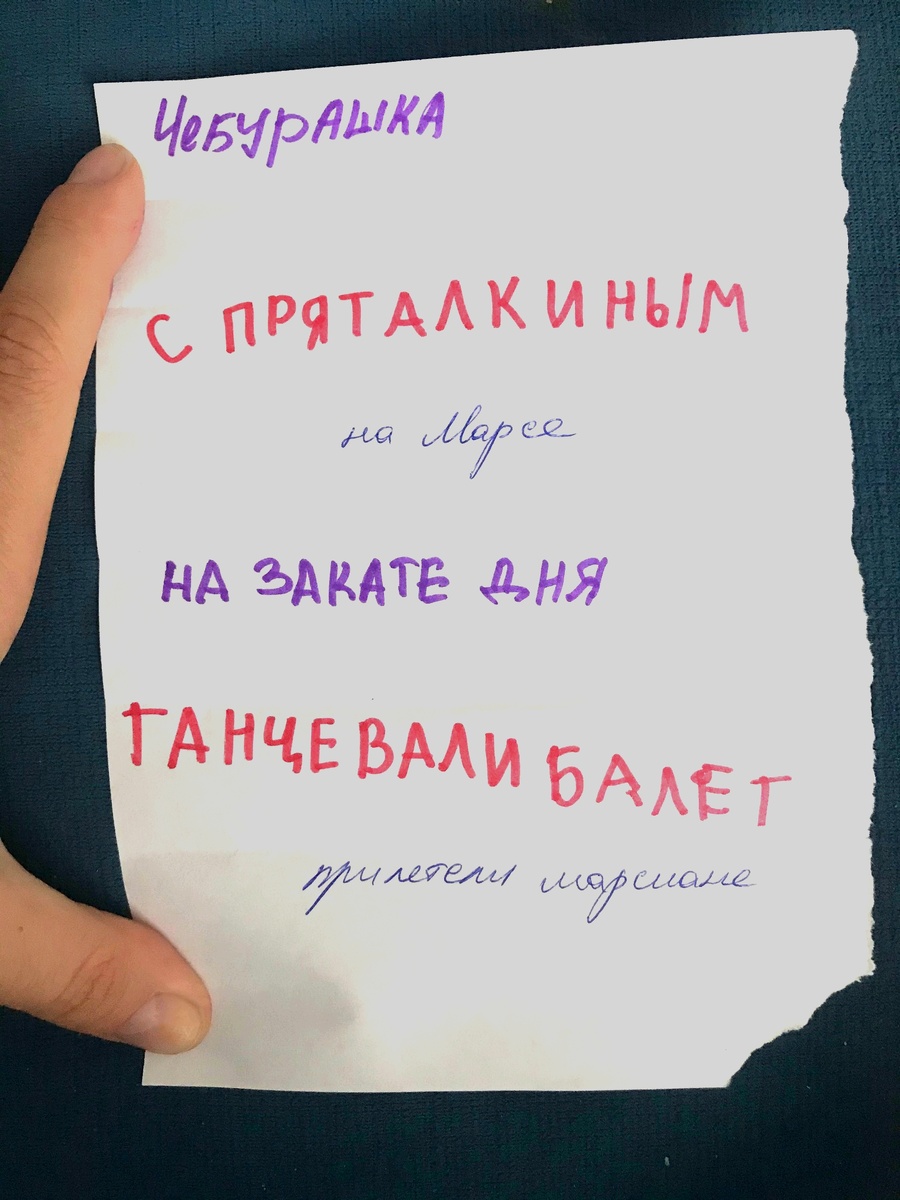 ЧеБУРАШКА
С ПРЯТАЛКИНЫМ
на Марсе
НА ЗАКАТЕ ДНЯ
ТАНЦЕВАЛИ БАЛЕТ
прилетели марсиане